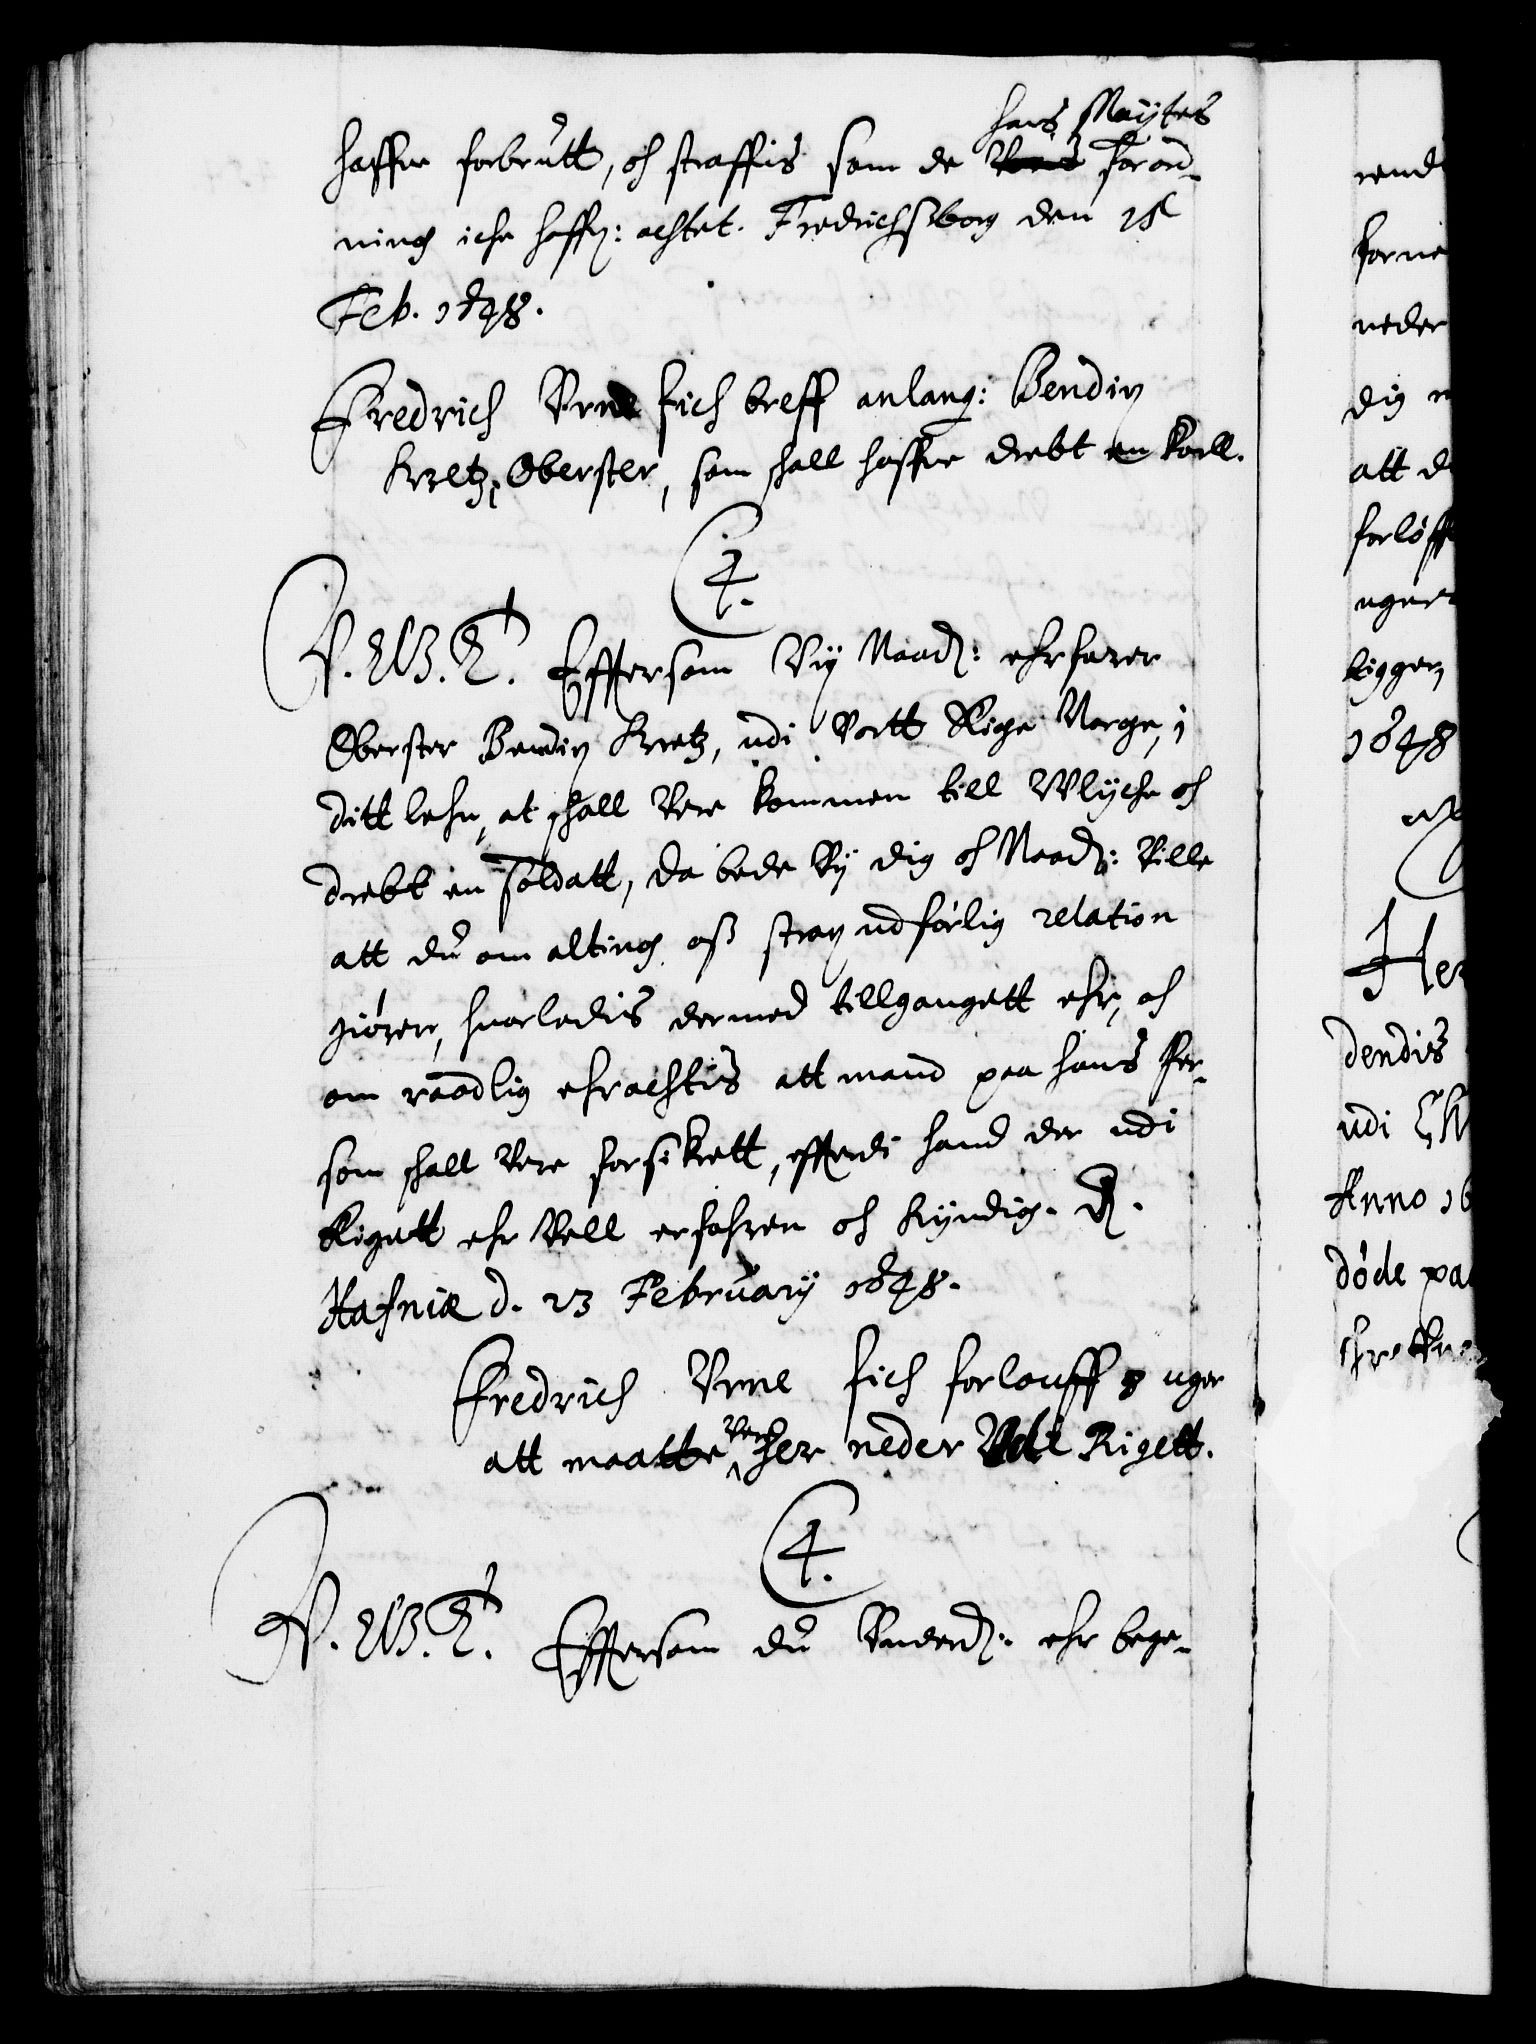 hans Maÿtes
haffue forbrutt, oh straffis som de Vores forord-
ning iche haffr: achtet. Fredrichsborg den 18
Feb. 1648.
Fredrich Vrne fich breff anlang: Bendix
Kretz, Oberster, som shall haffue drebt en Karll.
C4.
V.G.G.T. Efftersom Vij Naadr: ehrfarer
Oberster Bendix Kretz, udi Vortt Rige Norge, i
ditt lehn, at shall Vere kommen till Vlyche oh
drebt en Soldatt, da bede Vij dig oh Naadr: Ville
att du om alting oss strax udførlig relation
giører, huorledis dermed tillgangett ehr, oh
om raadlig ehrachtis att mand paa hans Per-
son shall Vere forsikrett, efftterdi hand der udi
Rigett ehr Vell erfahren oh Kyndig. D.
Hafniæ d. 23 February 1648.
Fredrich Vrne fich forlouff 8 uger
att maatte Vere her neder Vdi Rigett.
C4.
V.G.G.T. Efftersom du Vnderdr: ehr bege-
rend
forne
neder
dig
att d
forløff
uger
ligger
1648
Her
dendis
udi
Anno 16
døde paa